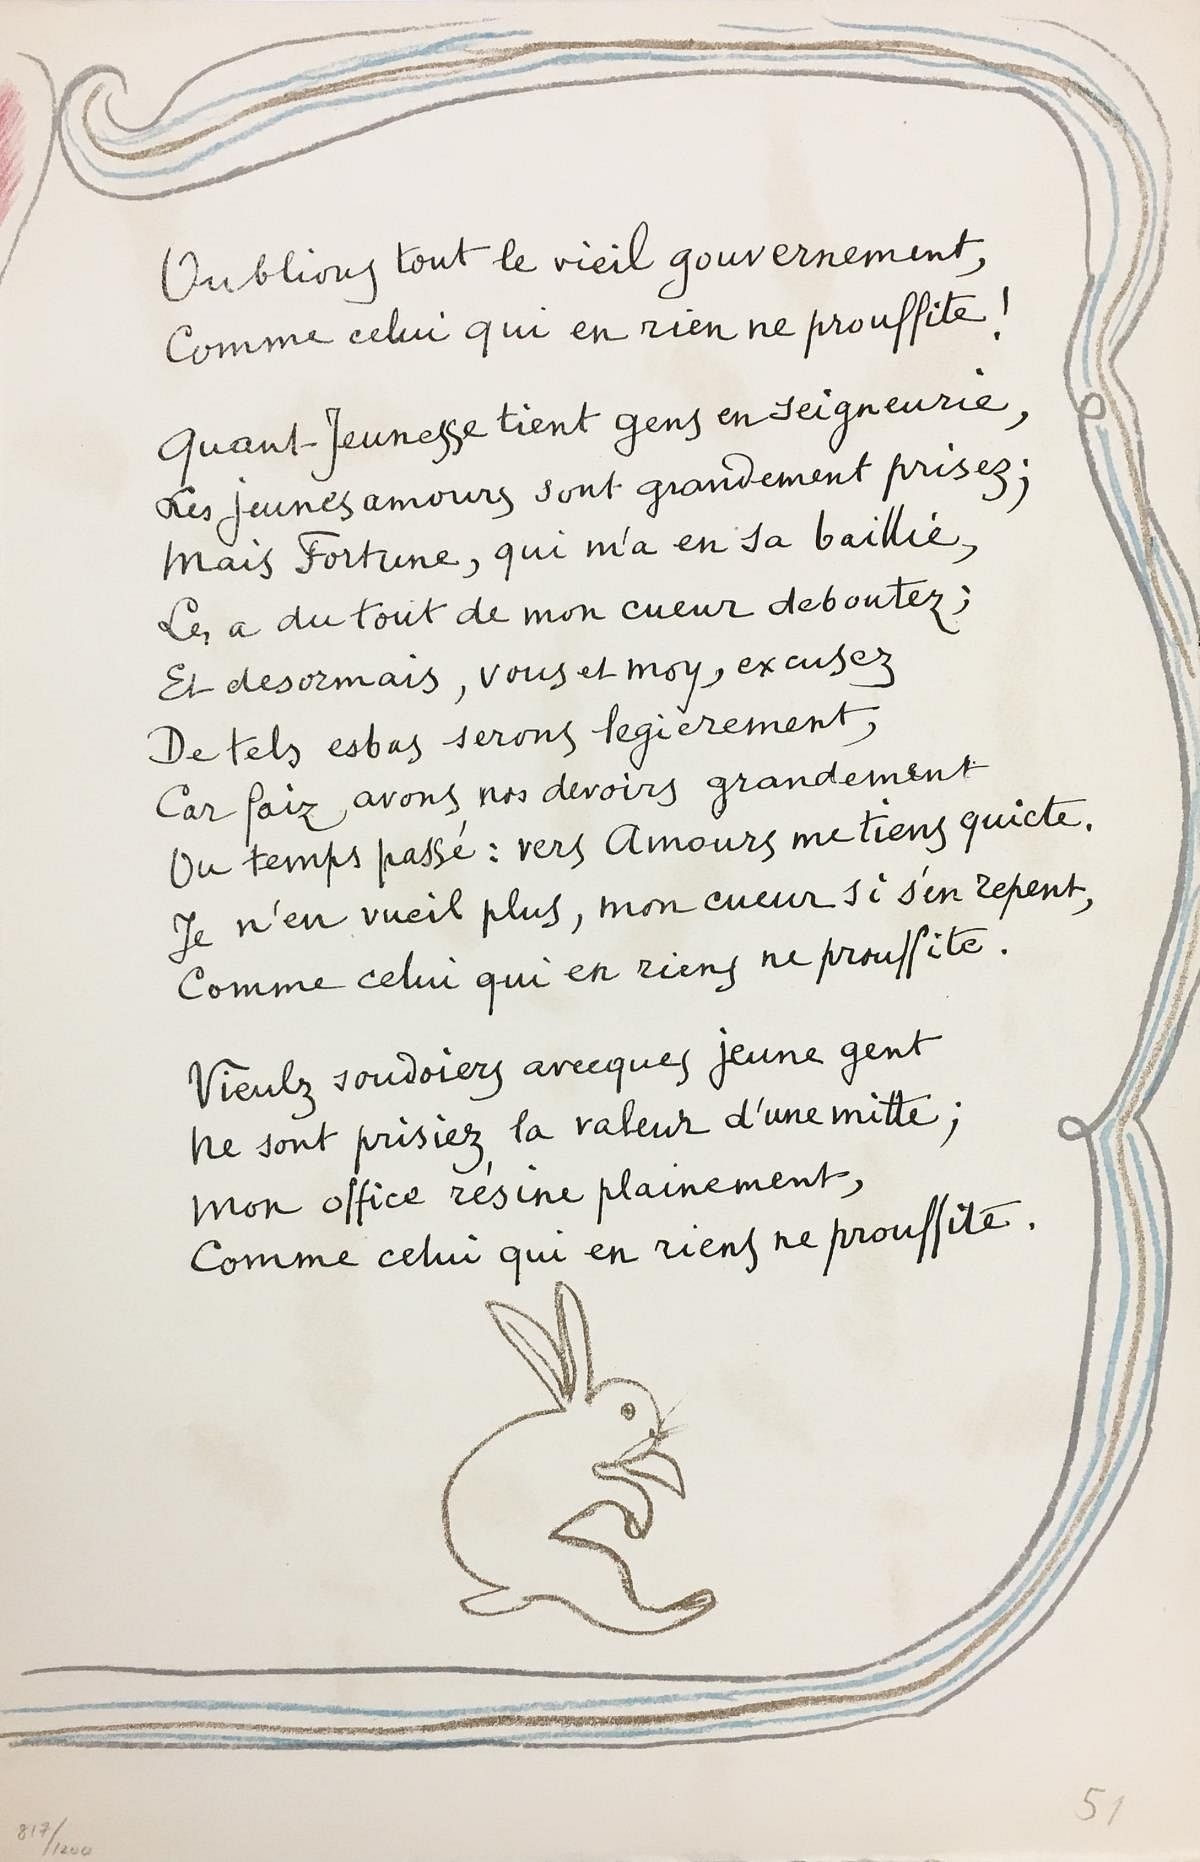 Oublions tout le vieil gouvernement,
Comme celui qui en rien ne prouffite!
Quant Jeunesse tient gens en seigneurie,
Les jeunes amours sont grandement prisez;
Mais Fortune, qui m'a en sa baillie,
Les a du tout de mon cueur deboutez;
Et desormais, vous et moy, excusez
De tels esbas serons legièrement,
Car faiz avons nos devoirs grandement
Ou temps passé: vers Amours me tiens quicte.
Je n'en vueil plus, mon cueur si s'en repent,
Comme celui qui en riens ne prouffite.
Vieulz soudoiers avecques jeune gent
Ne sont prisiez la valeur d'une mitte;
Mon office résine plainement,
Comme celui qui en riens ne prouffite.
51
817/1200